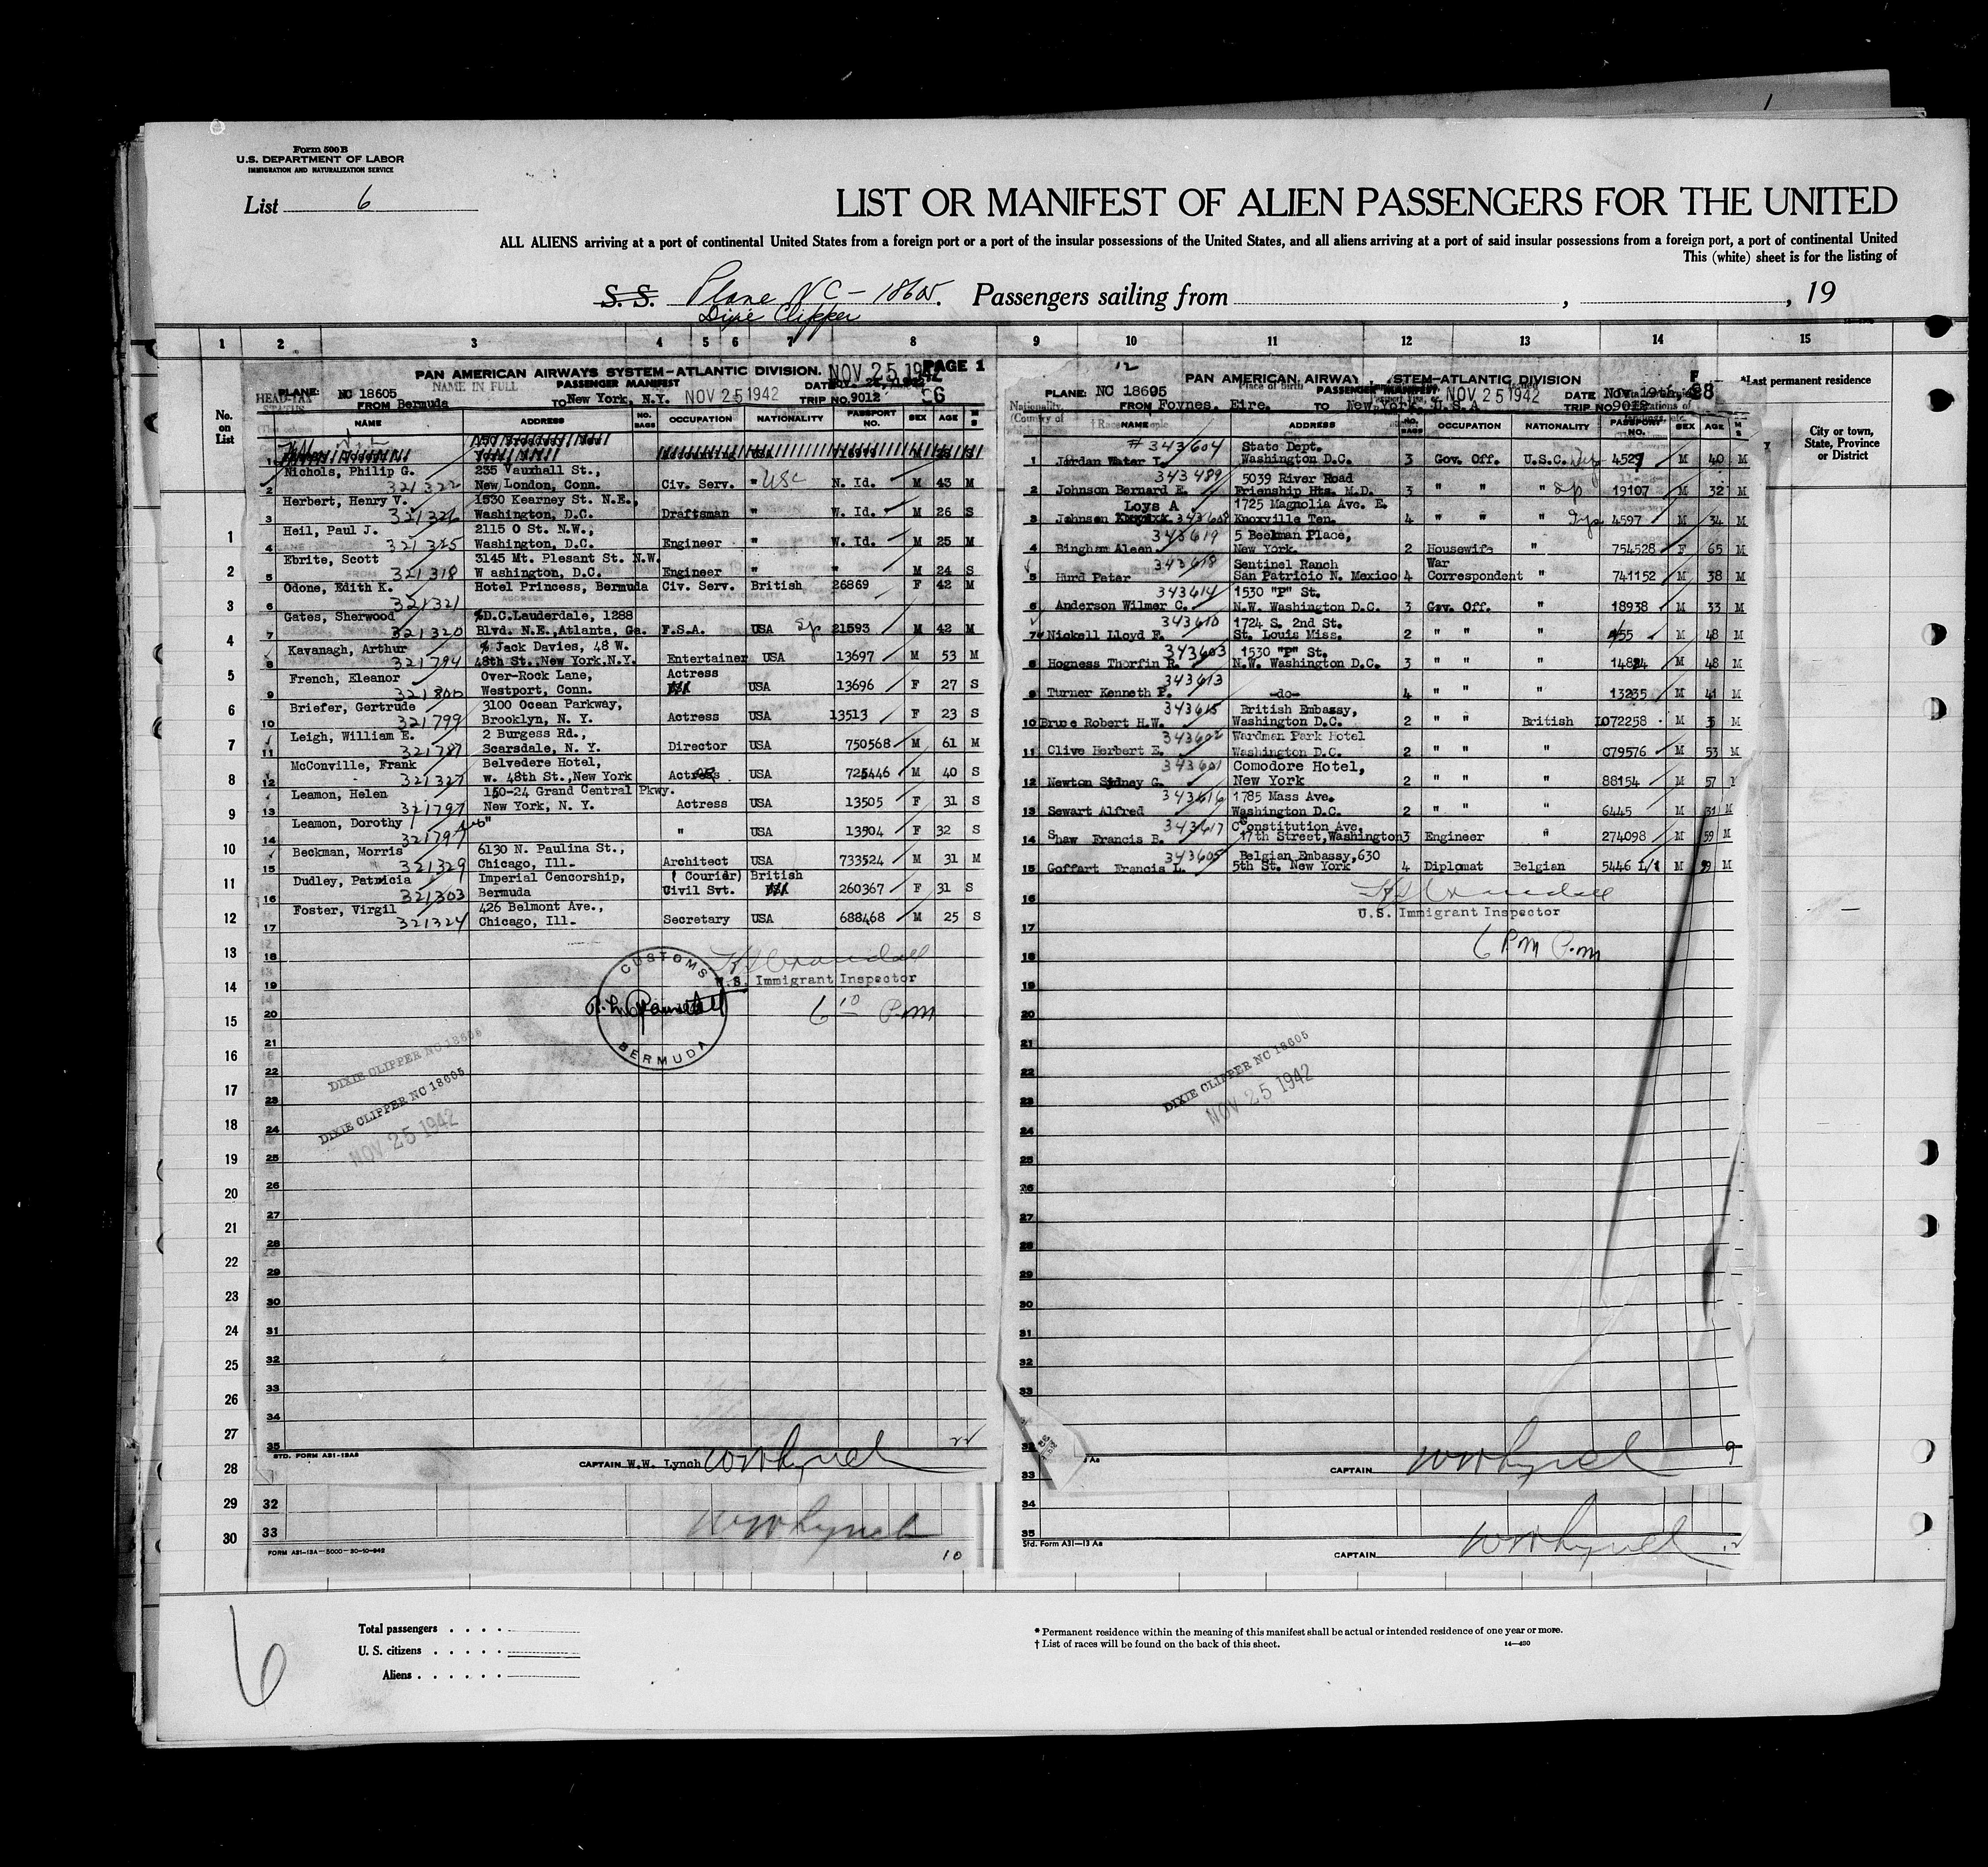 Form 500 B
U.S. DEPARTMENT OF LABOR
IMMIGRATION AND NATURALIZATION SERVICE
List 6
LIST OR MANIFEST OF ALIEN PASSENGERS FOR THE UNITED
ALL ALIENS arriving at a port of continental United States from a foreign port or a port of the insular possessions of the United States, and all aliens arriving at a port of said insular possessions from a foreign port, a port of continental United
This (white) sheet is for the listing of
S. S. Plane NC - 18605. Passengers sailing from , , 19
Dixie Clipper
1 2 3 4 5 6 7 8 9 10 11 12 13 14 15
No. on List
PAN AMERICAN AIRWAYS SYSTEM-ATLANTIC DIVISION. NOV 25 1942 PAGE 1
HEAD-TAX STATUS NAME IN FULL
PLANE: NC 18605 PASSENGER MANIFEST NOV 25 1942 DATE
FROM Bermuda TO New York, N.Y. TRIP NO. 9012
NAME ADDRESS NO. BAGS OCCUPATION NATIONALITY PASSPORT NO. SEX AGE M S
1
2 Nichols, Philip G. 321322 235 Vauxhall St., New London, Conn. Civ. Serv. " USC N. Id. M 43 M
3 Herbert, Henry V. 321326 1530 Kearney St. N.E., Washington, D.C. Draftsman " W. Id. M 26 S
4 Heil, Paul J. 321325 2115 O St. N.W., Washington, D.C. Engineer " W. Id. M 25 M
5 Ebrite, Scott 321318 3145 Mt. Plesant St. N.W. W ashington, D.C. Engineer " " M 24 S
6 Odone, Edith K. 321321 Hotel Princess, Bermuda Civ. Serv. British 26869 F 42 M
7 Gates, Sherwood 321320 % D.C. Lauderdale, 1288 Blvd. N.E., Atlanta, Ga. F.S.A. USA 21593 M 42 M
8 Kavanagh, Arthur 321794 % Jack Davies, 48 W. 48th St., New York, N.Y. Entertainer USA 13697 M 53 M
9 French, Eleanor 321800 Over-Rock Lane, Westport, Conn. Actress USA 13696 F 27 S
10 Briefer, Gertrude 321799 3100 Ocean Parkway, Brooklyn, N. Y. Actress USA 13513 F 23 S
11 Leigh, William E. 321787 2 Burgess Rd., Scarsdale, N. Y. Director USA 750568 M 61 M
12 McConville, Frank 321327 Belvedere Hotel, w. 48th St., New York USA 725446 M 40 S
13 Leamon, Helen 321797 150-24 Grand Central Pkwy. New York, N. Y. Actress USA 13505 F 31 S
14 Leamon, Dorothy " " USA 13504 F 32 S
15 Beckman, Morris 321329 6130 N. Paulina St., Chicago, Ill. Architect USA 733524 M 31 M
16 Dudley, Patricia 321303 Imperial Cencorship, Bermuda ( Courier) Civil Svt. British 260367 F 31 S
17 Foster, Virgil 321324 426 Belmont Ave., Chicago, Ill. Secretary USA 688468 M 25 S
U.S. Immigrant Inspector
6 10 P.m
CUSTOMS
BERMUDA
DIXIE CLIPPER NC 18605
DIXIE CLIPPER NC 18605
NOV 25 1942
18
19
20
21
22
23
24
25
26
27
28
29
30
31
32
33
34
35
STD. FORM A31-13AS
CAPTAIN W.W. Lynch WW Lynch
32
33
WW Lynch
FORM A31-13A-5000-30-10-942
10
12
PAN AMERICAN AIRWAY STEM-ATLANTIC DIVISION
PLANE: NC 18605 NOV 25 1942 DATE
FROM Foynes, Eire. TO New York, U.S.A TRIP NO.
NAME ADDRESS NO. BAGS OCCUPATION NATIONALITY PASSPORT NO. SEX AGE M S
1 # 343604 State Dept. Washington D.C. 3 Gov. Off. U.S.C. M 40 M
2 Johnson Bernard E. 343489 5039 River Road Frienship Hts. M.D. 3 " " " 19107 M 32 M
3 Johnson Loys A 1725 Magnolia Ave. E. Knoxville Ten. 4 " " " 4597 M 34 M
4 Bingham Aleen 343619 5 Beekman Place, New York. 2 Housewife " 754528 F 65 M
5 Hurd Peter 343618 Sentinel Ranch San Patricio N. Mexico 4 War Correspondent " 741152 M 38 M
6 Anderson Wilmer C. 343614 1530 "P" St. N.W. Washington D.C. 3 Gov. Off. " 18938 M 33 M
7 Nickell Lloyd F. 343610 1724 S. 2nd St. St. Louis Miss. 2 " " " M 48 M
8 Hogness Thorfin R. 343603 1530 "P" St. N.W. Washington D.C. 3 " " " M 48 M
9 Turner Kenneth P. 343613 -do- 4 " " " 13235 M 41 M
10 Bruce Robert H.W. 343615 British Embassy, Washington D.C. 2 " " British 1072258 M M
11 Clive Herbert E. 343602 Wardman Park Hotel Washington D.C. 2 " " " 079576 M 53 M
12 Newton Sydney G. 343601 Comodore Hotel, New York 2 " " " 88154 M 57
13 Sewart Alfred 343616 1785 Mass Ave. Washington D.C. 2 " " " 6445 M 31 M
14 Shaw Francis B. 343617 Constitution Ave. 17th Street, Washington 3 Engineer " 274098 M 59 M
15 Goffart Francis L. 343605 Belgian Embassy, 630 5th St. New York 4 Diplomat Belgian 5446 M M
16
U.S. Immigrant Inspector
17
6 Pm P.m
18
19
20
21
22
23
24
25
26
27
28
29
30
31
32
33
DIXIE CLIPPER NC 18605
NOV 25 1942
CAPTAIN WW Lynch 9
33
34
35
Std. Form A31-13 As
CAPTAIN WW Lynch 12
*Last permanent residence
City or town, State, Province or District
1
2
3
4
5
6
7
8
9
10
11
12
13
14
15
16
17
18
19
20
21
22
23
24
25
26
27
28
29
30
6
Total passengers . . . .
U. S. citizens . . . . .
Aliens . . . . . .
* Permanent residence within the meaning of this manifest shall be actual or intended residence of one year or more.
† List of races will be found on the back of this sheet.
14-430